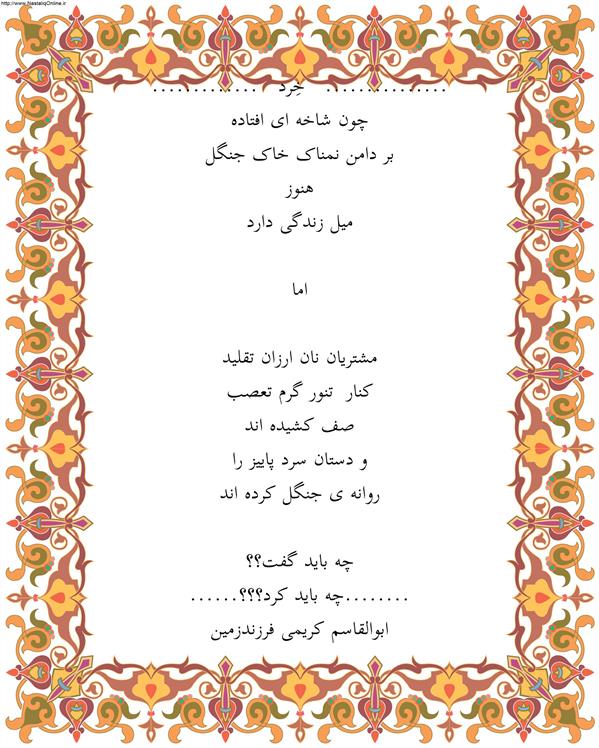 http://www.NastaliqOnline.ir
............... خِرَد .............
چون شاخه ای افتاده
بر دامن نمناک خاک جنگل
هنوز
میل زندگی دارد
اما
مشتریان نان ارزان تقلید
کنار تنور گرم تعصب
صف کشیده اند
و دستان سرد پاییز را
روانه ی جنگل کرده اند
چه باید گفت؟؟
........چه باید کرد؟؟؟......
ابوالقاسم کریمی فرزندزمین